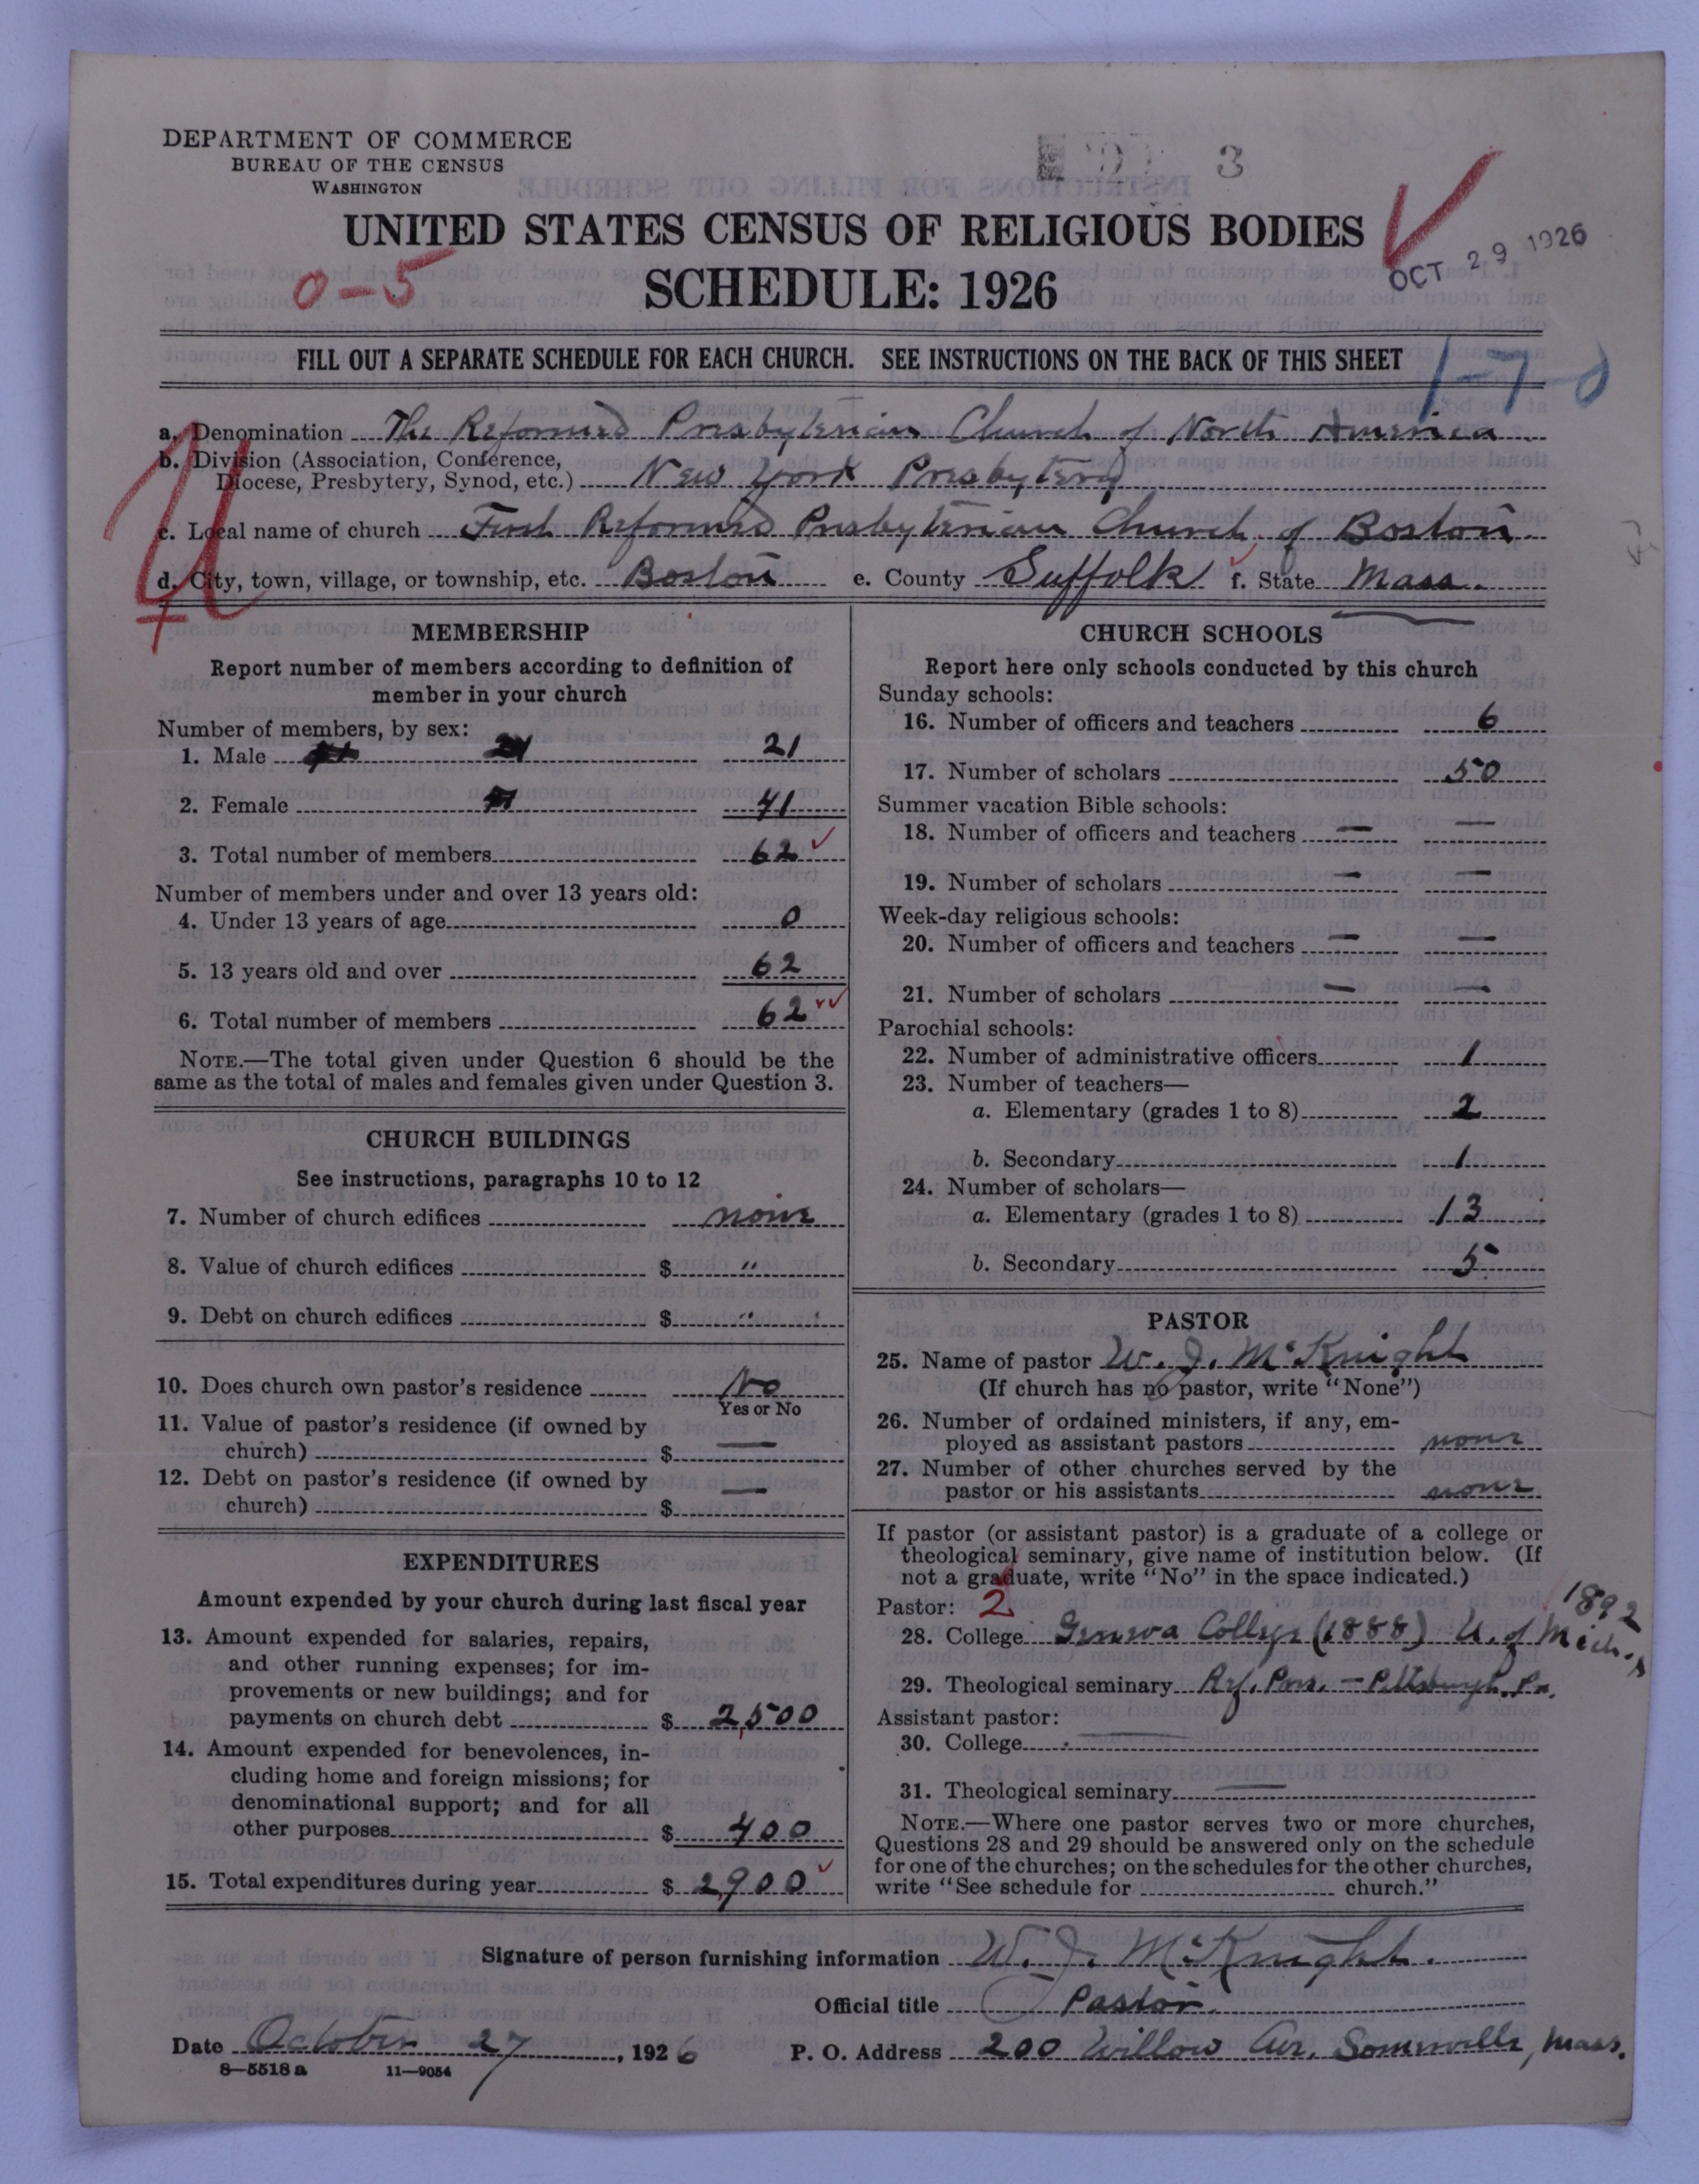 DEPARTMENT OF COMMERCE
BUREAU OF THE CENSUS
WASHINGTON
3
UNITED STATES CENSUS OF RELIGIOUS BODIES
OCT 29 1926
0-5
SCHEDULE: 1926
FILL OUT A SEPARATE SCHEDULE FOR EACH CHURCH. SEE INSTRUCTIONS ON THE BACK OF THIS SHEET
1-7-0
a. Denomination The Reformed Presbyterian Church of North America
b. Division (Association, Conference,
Diocese, Presbytery, Synod, etc.) New York Presbytery
c. Local name of church First Reformed Presbyterian Church of Boston
d. City, town, village, or township, etc. Boston e. County Suffolk f. State Mass.
MEMBERSHIP
Report number of members according to definition of
member in your church
Number of members, by sex:
1. Male 21
2. Female 41
3. Total number of members 62
Number of members under and over 13 years old:
4. Under 13 years of age 0
5. 13 years old and over 62
6. Total number of members 62
NOTE.—The total given under Question 6 should be the
same as the total of males and females given under Question 3.
CHURCH BUILDINGS
See instructions, paragraphs 10 to 12
7. Number of church edifices none
8. Value of church edifices $ "
9. Debt on church edifices $ "
10. Does church own pastor's residence No
Yes or No
11. Value of pastor's residence (if owned by
church) $ —
12. Debt on pastor's residence (if owned by
church) $ —
EXPENDITURES
Amount expended by your church during last fiscal year
13. Amount expended for salaries, repairs,
and other running expenses; for im-
provements or new buildings; and for
payments on church debt $ 2,500
14. Amount expended for benevolences, in-
cluding home and foreign missions; for
denominational support; and for all
other purposes $ 400
15. Total expenditures during year $ 2900
CHURCH SCHOOLS
Report here only schools conducted by this church
Sunday schools:
16. Number of officers and teachers 6
17. Number of scholars 50
Summer vacation Bible schools:
18. Number of officers and teachers — —
19. Number of scholars — —
Week-day religious schools:
20. Number of officers and teachers — —
21. Number of scholars — —
Parochial schools:
22. Number of administrative officers 1
23. Number of teachers—
a. Elementary (grades 1 to 8) 2
b. Secondary 1
24. Number of scholars—
a. Elementary (grades 1 to 8) 13
b. Secondary 5
PASTOR
25. Name of pastor W. J. McKnight
(If church has no pastor, write "None")
26. Number of ordained ministers, if any, em-
ployed as assistant pastors none
27. Number of other churches served by the
pastor or his assistants none
If pastor (or assistant pastor) is a graduate of a college or
theological seminary, give name of institution below. (If
not a graduate, write "No" in the space indicated.)
Pastor: 2
1892
28. College Geneva College (1888) U. of Mich.
29. Theological seminary Ref. Pres. – Pittsburgh, Pa.
Assistant pastor:
30. College
31. Theological seminary
NOTE.—Where one pastor serves two or more churches,
Questions 28 and 29 should be answered only on the schedule
for one of the churches; on the schedules for the other churches,
write "See schedule for church."
Signature of person furnishing information W. J. McKnight.
Official title Pastor
Date October 27, 1926 P. O. Address 200 Willow Ave. Somerville, Mass.
8—5518 a 11—9054